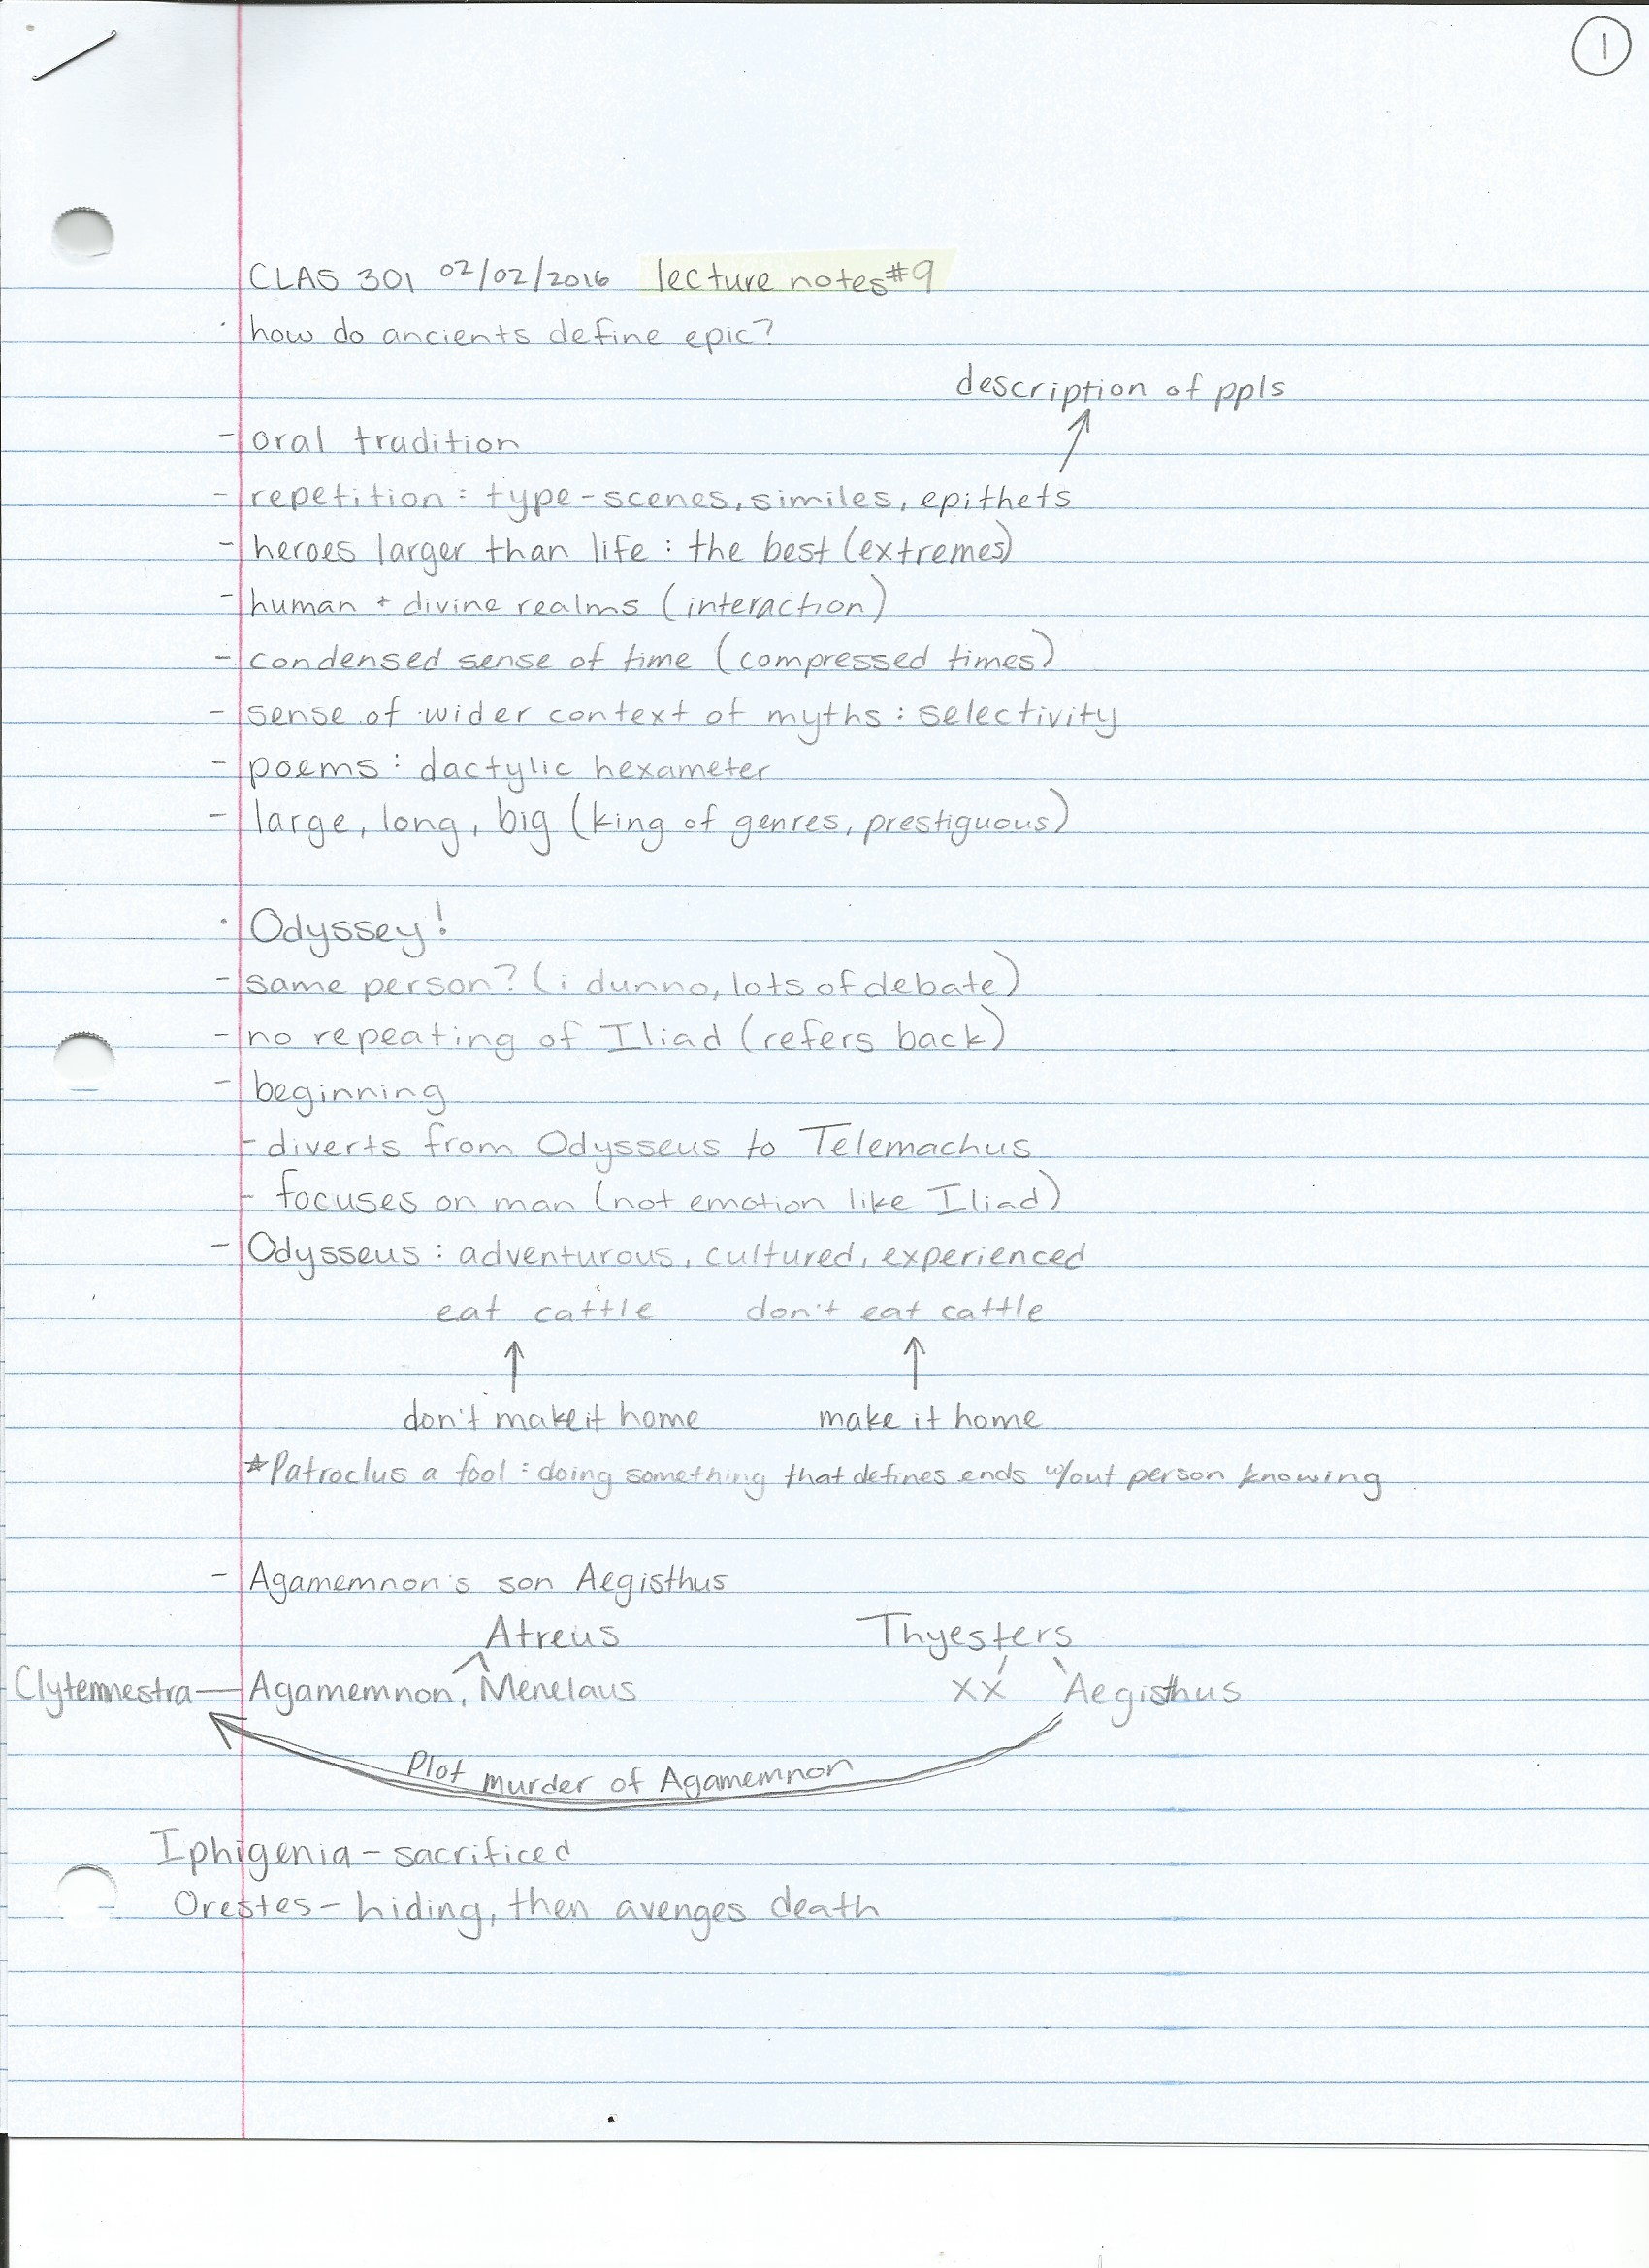 1
CLAS 301 02/02/2016 lecture notes #9
· how do ancients define epic?
description of ppls
- oral tradition
- repetition: type-scenes, similes, epithets
- heroes larger than life: the best (extremes)
- human + divine realms (interaction)
- condensed sense of time (compressed times)
- sense of wider context of myths: selectivity
- poems: dactylic hexameter
- large, long, big (king of genres, prestiguous)
· Odyssey!
- same person? (i dunno, lots of debate)
- no repeating of Iliad (refers back)
- beginning
- diverts from Odysseus to Telemachus
- focuses on man (not emotion like Iliad)
- Odysseus: adventurous, cultured, experienced
eat cattle don't eat cattle
↑ ↑
don't make it home make it home
*Patroclus a fool: doing something that defines ends w/out person knowing
- Agamemnon's son Aegisthus
Atreus Thyesters
Clytemnestra — Agamemnon, Menelaus XX Aegisthus
Plot murder of Agamemnon
Iphigenia - sacrificed
Orestes - hiding, then avenges death